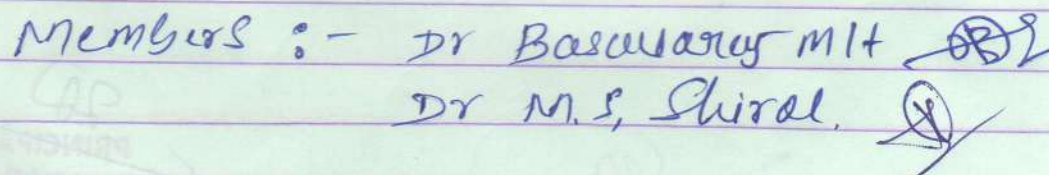 Members :- Dr Basavaraj M H
Dr M. S, Shirol.